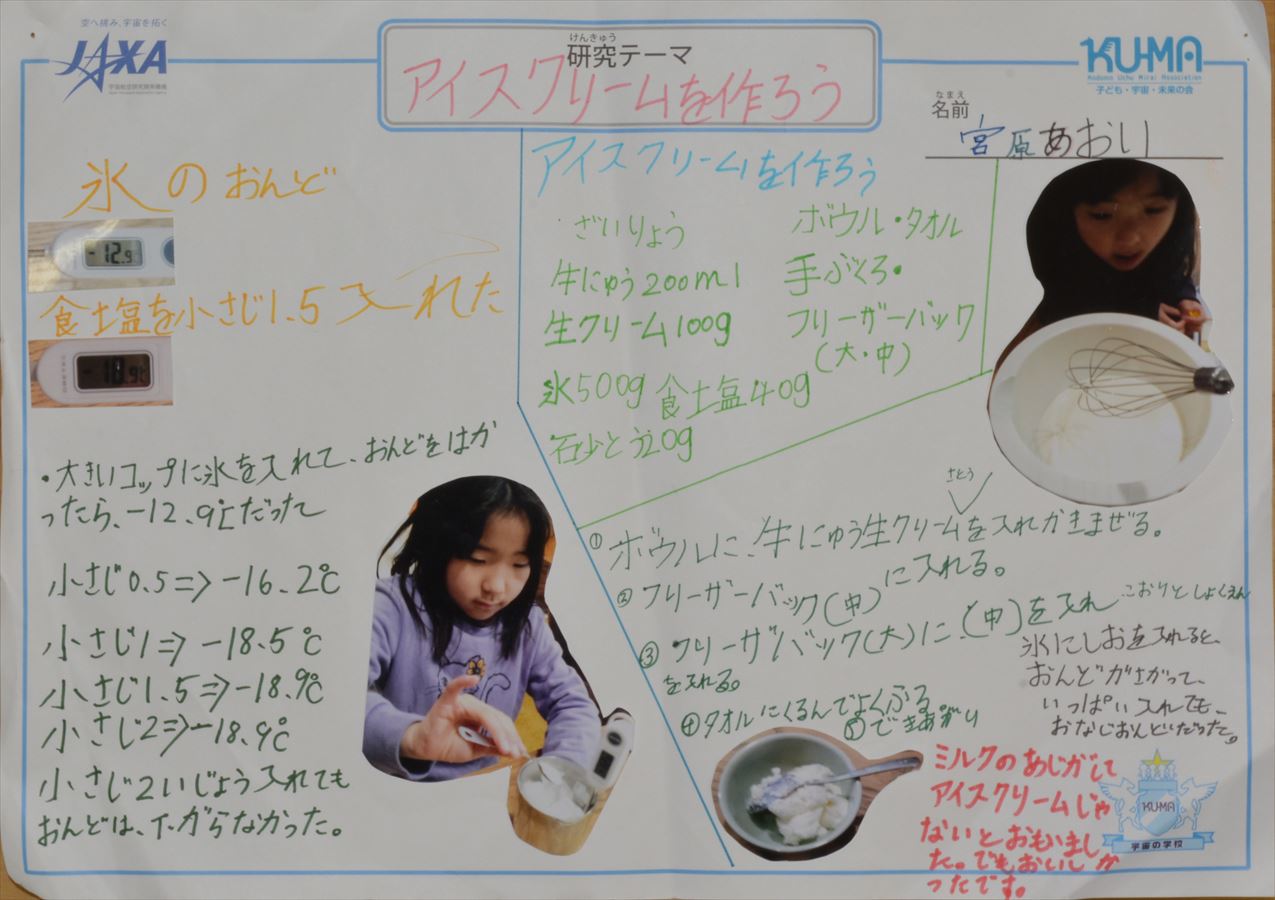 空へ挑み、宇宙を拓く
JAXA
宇宙航空研究開発機構
けんきゅう
研究テーマ
アイスクリームを作ろう
KU-MA
Kodomo Uchu Mirai Association
子ども・宇宙・未来の会
なまえ
名前
宮原あおい
氷のおんど
-12.9
食士塩を小さじ1.5入れた
-18.9℃
・大きいコップに氷を入れて、おんどをはか
ったら、-12.9℃だった
小さじ0.5=>-16.2℃
小さじ1=>-18.5℃
小さじ1.5=>-18.9℃
小さじ2=>-18.9℃
小さじ2いじょう入れても
おんどは、下がらなかった。
アイスクリームを作ろう
ざいりょう
牛にゅう200ml
生クリーム100g
氷500g 食士塩40g
石少とう20g
ボウル・タオル
手ぶくろ・
フリーザーバック
(大・中)
さとう
①ボウルに、牛にゅう生クリームを入れかきまぜる。
②フリーザーバック(中)に入れる。
③フリーザバック(大)に、(中)を入れ こおりとしょくえん
を入れる。
④タオルにくるんでよくふる
⑤できあがり
氷にしおを入れると、
おんどがさがって、
いっぱい入れても、
おなじおんどだった。
ミルクのあじがして
アイスクリームじゃ
ないとおもいまし
た。でもおいしか
ったです。
KU-MA
宇宙の学校